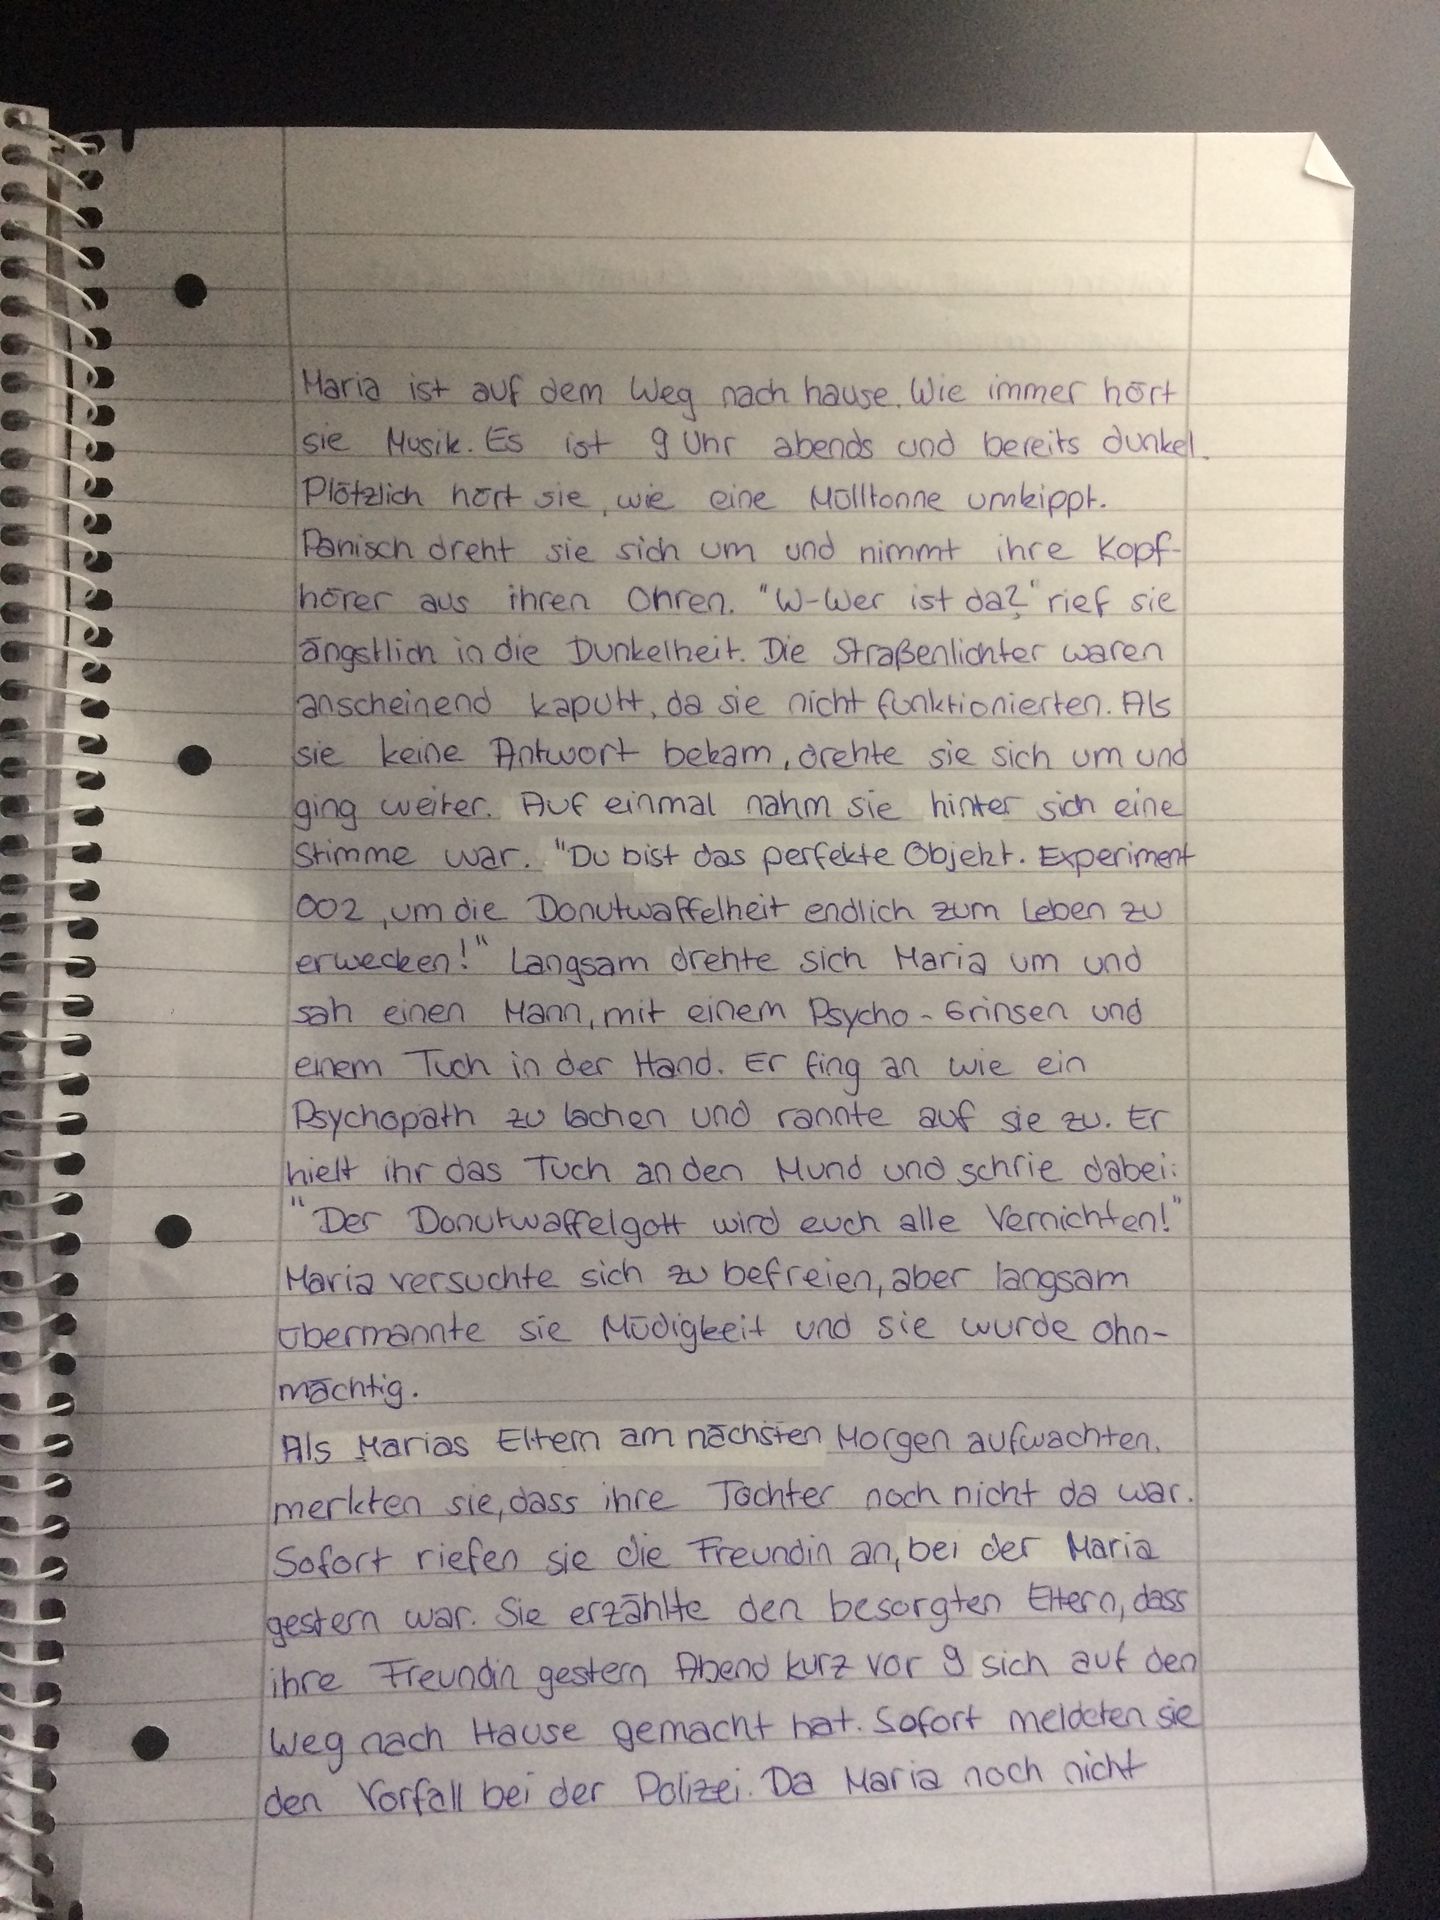 Maria ist auf dem Weg nach hause. Wie immer hört
sie Musik. Es ist 9 Uhr abends und bereits dunkel.
Plötzlich hört sie, wie eine Mülltonne umkippt.
Panisch dreht sie sich um und nimmt ihre Kopf-
hörer aus ihren Ohren. "W-Wer ist da?" rief sie
ängstlich in die Dunkelheit. Die Straßenlichter waren
anscheinend kaputt, da sie nicht funktionierten. Als
sie keine Antwort bekam, drehte sie sich um und
ging weiter. Auf einmal nahm sie hinter sich eine
Stimme war. "Du bist das perfekte Objekt. Experiment
002, um die Donutwaffelheit endlich zum Leben zu
erwecken!" Langsam drehte sich Maria um und
sah einen Mann, mit einem Psycho-Grinsen und
einem Tuch in der Hand. Er fing an wie ein
Psychopath zu lachen und rannte auf sie zu. Er
hielt ihr das Tuch an den Mund und schrie dabei:
"Der Donutwaffelgott wird euch alle Vernichten!"
Maria versuchte sich zu befreien, aber langsam
übermannte sie Müdigkeit und sie wurde ohn-
mächtig.
Als Marias Eltern am nächsten Morgen aufwachten,
merkten sie, dass ihre Tochter noch nicht da war.
Sofort riefen sie die Freundin an, bei der Maria
gestern war. Sie erzählte den besorgten Eltern, dass
ihre Freundin gestern Abend kurz vor 9 sich auf den
Weg nach Hause gemacht hat. Sofort meldeten sie
den Vorfall bei der Polizei. Da Maria noch nicht